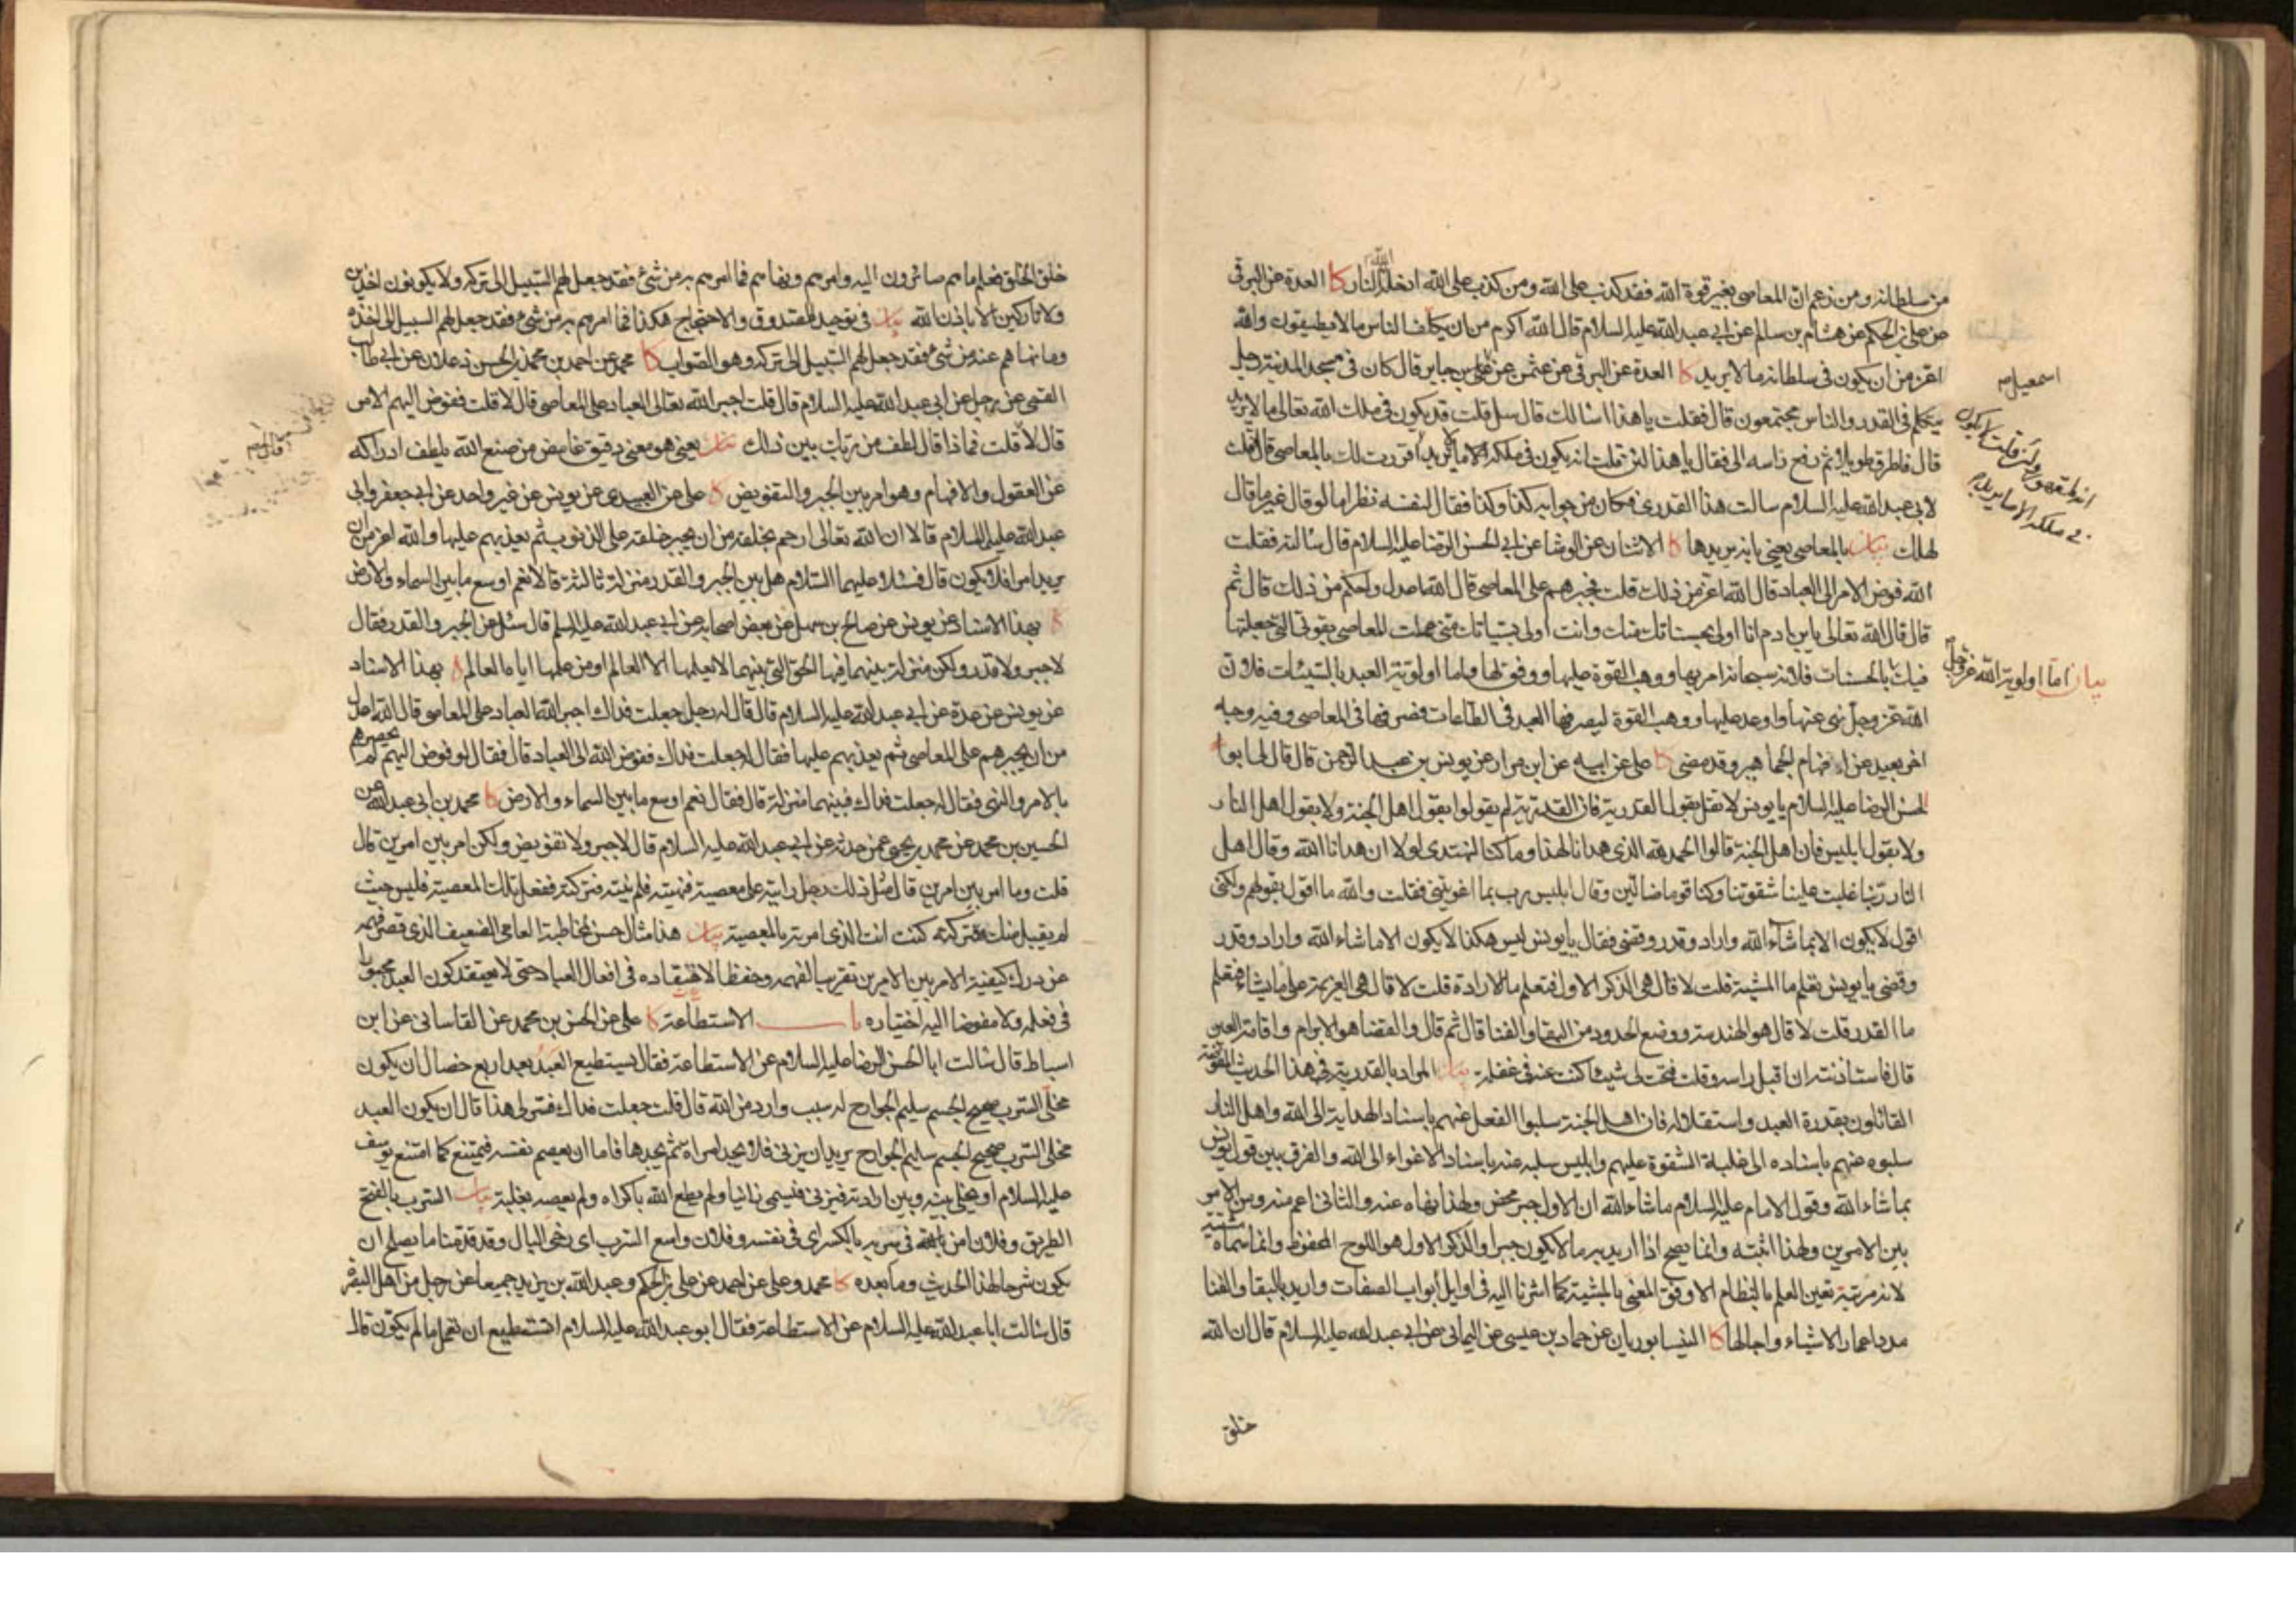 من سلطانه ومن زعم ان المعاصى بغير قوة الله فقد كذب على الله ومن كذب على الله ادخله الله النار كا العدة عن البرقى
عن على بن الحكم عن هشام بن سالم عن ابى عبد الله عليه السلام قال الله اكرم من ان يكلف الناس ما لا يطيقون والله
اعز من ان يكون فى سلطانه ما لا يريد كا العدة عن البرقى عن عثمن عن اسمعيل بن جابر قال كان فى مسجد المدينة رجل
يتكلم فى القدر والناس مجتمعون قال فقلت يا هذا اسالك قال سل قلت قد يكون فى ملك الله تعالى ما لا يريد
قال فاطرق طويلا ثم رفع راسه الى فقال يا هذا لئن قلت انه يكون فى ملكه ما لا يريد انه لمقهور ولئن قلت لا يكون فى ملكه الا ما يريد اقررت لك بالمعاصى قال فقلت
لابى عبد الله عليه السلام سالت هذا القدرى فكان من جوابه كذا وكذا فقال لنفسه نظر اما لو قال غير ما قال
لهلك بيان بالمعاصى يعنى بانه يريدها كا الاثنان عن الوشا عن ابى الحسن الرضا عليه السلام قال سالته فقلت
الله فوض الامر الى العباد قال الله اعز من ذلك قلت فجبرهم على المعاصى قال الله اعدل واحكم من ذلك قال ثم
قال قال الله تعالى يابن ادم انا اولى بحسناتك منك وانت اولى بسيئاتك منى عملت المعاصى بقوتى التى جعلتها
فيك بيان اما اولوية الله عز وجل بالحسنات فلانه سبحانه امر بها ووهب القوة عليها ووفق لها واما اولوية العبد بالسيئات فلان
الله عز وجل نهى عنها واوعد عليها ووهب القوة ليصرفها العبد فى الطاعات فصرفها فى المعاصى وفيه وجه
اخر بعيد عن افهام الجماهير وقد مضى كا على عن ابيه عن ابن مرار عن يونس بن عبد الرحمن قال قال لى ابو
الحسن الرضا عليه السلام يا يونس لا تقل بقول القدرية فان القدرية لم يقولوا بقول اهل الجنة ولا بقول اهل النار
ولا بقول ابليس فان اهل الجنة قالوا الحمد لله الذى هدانا لهذا وما كنا لنهتدى لولا ان هدانا الله وقال اهل
النار ربنا غلبت علينا شقوتنا وكنا قوما ضالين وقال ابليس رب بما اغويتنى فقلت والله ما اقول بقولهم ولكنى
اقول لا يكون الا بما شاء الله واراد وقدر وقضى فقال يا يونس ليس هكذا لا يكون الا ما شاء الله واراد وقدر
وقضى يا يونس تعلم ما المشية قلت لا قال هى الذكر الاول فتعلم ما الارادة قلت لا قال هى العزيمة على ما يشاء فتعلم
ما القدر قلت لا قال هو الهندسة ووضع الحدود من البقاء والفنا قال ثم قال والقضا هو الابرام واقامة العين
قال فاستاذنته ان اقبل راسه وقلت فتحت لى شيئا كنت عنه فى غفلة بيان المراد بالقدرية فى هذا الحديث المفوضة
القائلون بقدرة العبد واستقلاله فان اهل الجنة سلبوا الفعل عنهم باسناد الهداية الى الله واهل النار
سلبوه عنهم باسناده الى غلبة الشقوة عليهم وابليس سلبه عنه باسناد الاغواء الى الله والفرق بين قول يونس
بما شاء الله وقول الامام عليه السلام ما شاء الله ان الاول جبر محض ولهذا نفاه عنه والثانى اعم منه ومن الامر
بين الامرين ولهذا اثبته وانما يصح اذا اريد به ما لا يكون جبرا والذكر الاول هو اللوح المحفوظ وانما سماه مشية
لانه مرتبة تعين العلم بالنظام الاوفق المعنى بالمشية كما اشرنا اليه فى اوايل ابواب الصفات واريد بالبقا والفنا
مدد اعمار الاشياء واجالها كا النيسابوريان عن حماد بن عيسى عن اليمانى عن ابى عبد الله عليه السلام قال ان الله
خلق
خلق الخلق فعلم ما هم صائرون اليه وامرهم ونهاهم فما امرهم به من شىء فقد جعل لهم السبيل الى تركه ولا يكونون اخذين
ولا تاركين الا باذن الله بيان فى توحيد الصدوق والاحتجاج هكذا فما امرهم به من شىء فقد جعل لهم السبيل الى اخذه
وما نهاهم عنه من شىء فقد جعل لهم السبيل الى تركه وهو الصواب كا محمد عن احمد بن محمد بن الحسن زعلان عن ابى طالب
القمى عن رجل عن ابى عبد الله عليه السلام قال قلت اجبر الله تعالى العباد على المعاصى قال لا قلت ففوض اليهم الامر
قال لا قلت فما ذا قال لطف من ربك بين ذلك بيان يعنى هو معنى دقيق غامض من صنع الله يلطف ادراكه
عن العقول والافهام وهو امر بين الجبر والتفويض كا على عن العبيدى عن يونس عن غير واحد عن ابى جعفر وابى
عبد الله عليهما السلام قالا ان الله تعالى ارحم بخلقه من ان يجبر خلقه على الذنوب ثم يعذبهم عليها والله اعز من ان
يريد امرا فلا يكون قال فسئلا عليهما السلام هل بين الجبر والقدر منزلة ثالثة قالا نعم اوسع ما بين السماء والارض
كا بهذا الاسناد عن يونس عن صالح بن سهل عن بعض اصحابه عن ابى عبد الله عليه السلم قال سئل عن الجبر والقدر فقال
لا جبر ولا قدر ولكن منزلة بينهما فيها الحق التى بينهما لا يعلمها الا العالم او من علمها اياه العالم كا بهذا الاسناد
عن يونس عن عدة عن ابى عبد الله عليه السلام قال قال له رجل جعلت فداك اجبر الله العباد على المعاصى قال الله اعدل
من ان يجبرهم على المعاصى ثم يعذبهم عليها فقال له جعلت فداك ففوض الله الى العباد قال فقال لو فوض اليهم لم يحصرهم
بالامر والنهى فقال له جعلت فداك فبينهما منزلة قال فقال نعم اوسع ما بين السماء والارض كا محمد بن ابى عبد الله عن
الحسين بن محمد عن محمد بن يحيى عمن حدثه عن ابى عبد الله عليه السلام قال لا جبر ولا تفويض ولكن امر بين امرين قال
قلت وما امر بين امرين قال مثل ذلك رجل رايته على معصية فنهيته فلم ينته فتركته ففعل تلك المعصية فليس حيث
لم يقبل منك فتركته كنت انت الذى امرته بالمعصية بيان هذا مثال حسن لمخاطبة العامى الضعيف الذى قصر فهمه
عن درك كيفية الامر بين الامرين تقريبا لفهمه وحفظا لاعتقاده فى افعال العباد حتى لا يعتقد كون العبد مجبورا
فى فعله ولا مفوضا اليه اختياره باب الاستطاعة كا على عن الحسن بن محمد عن القاسانى عن ابن
اسباط قال سالت ابا الحسن الرضا عليه السلام عن الاستطاعة فقال يستطيع العبد بعد اربع خصال ان يكون
مخلى السرب صحيح الجسم سليم الجوارح له سبب وارد من الله قال قلت جعلت فداك فسر لى هذا قال ان يكون العبد
مخلى السرب صحيح الجسم سليم الجوارح يريد ان يزنى فلا يجد امراة ثم يجدها فاما ان يعصم نفسه فيمتنع كما امتنع يوسف
عليه السلام او يخلى بينه وبين ارادته فيزنى فيسمى زانيا ولم يطع الله باكراه ولم يعصه بغلبة بيان السرب بالفتح
الطريق وفلان امن فى سربه بالكسر اى فى نفسه وفلان واسع السرب اى رخى البال وقد قدمنا ما يصلح ان
يكون شرحا لهذا الحديث وما بعده كا محمد وعلى عن احمد عن على بن الحكم وعبد الله بن يزيد جميعا عن رجل من اهل البصرة
قال سالت ابا عبد الله عليه السلام عن الاستطاعة فقال ابو عبد الله عليه السلام اتستطيع ان تعمل ما لم يكون قال